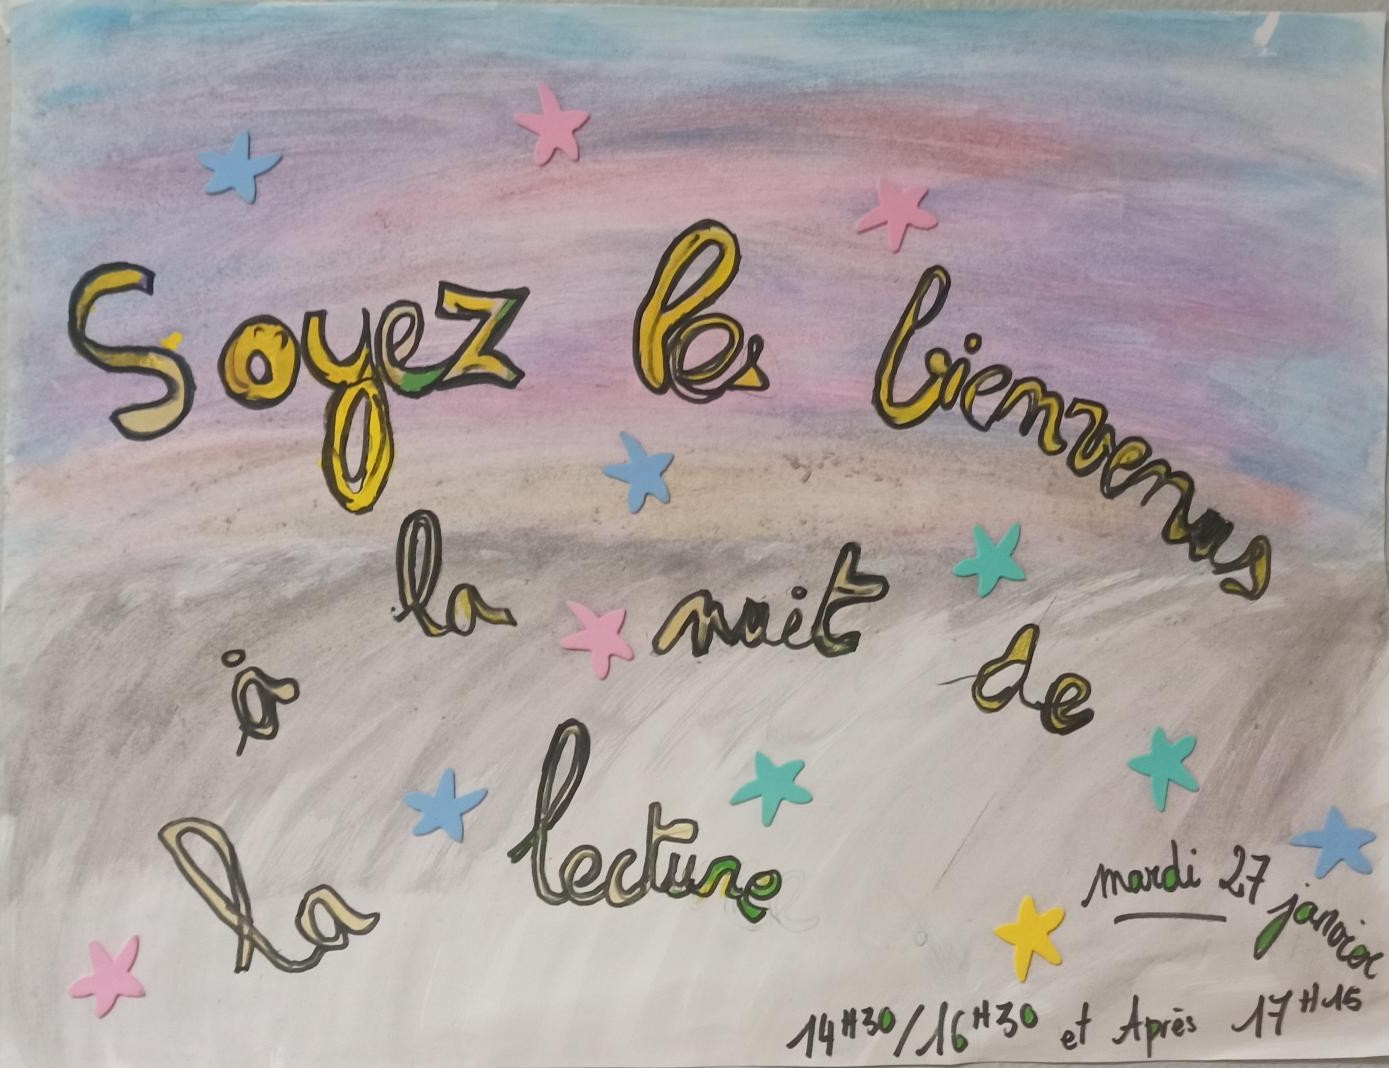 Soyez les bienvenus
à la nuit de
la lecture
mardi 27 janvier
14H30/16H30 et Après 17H15